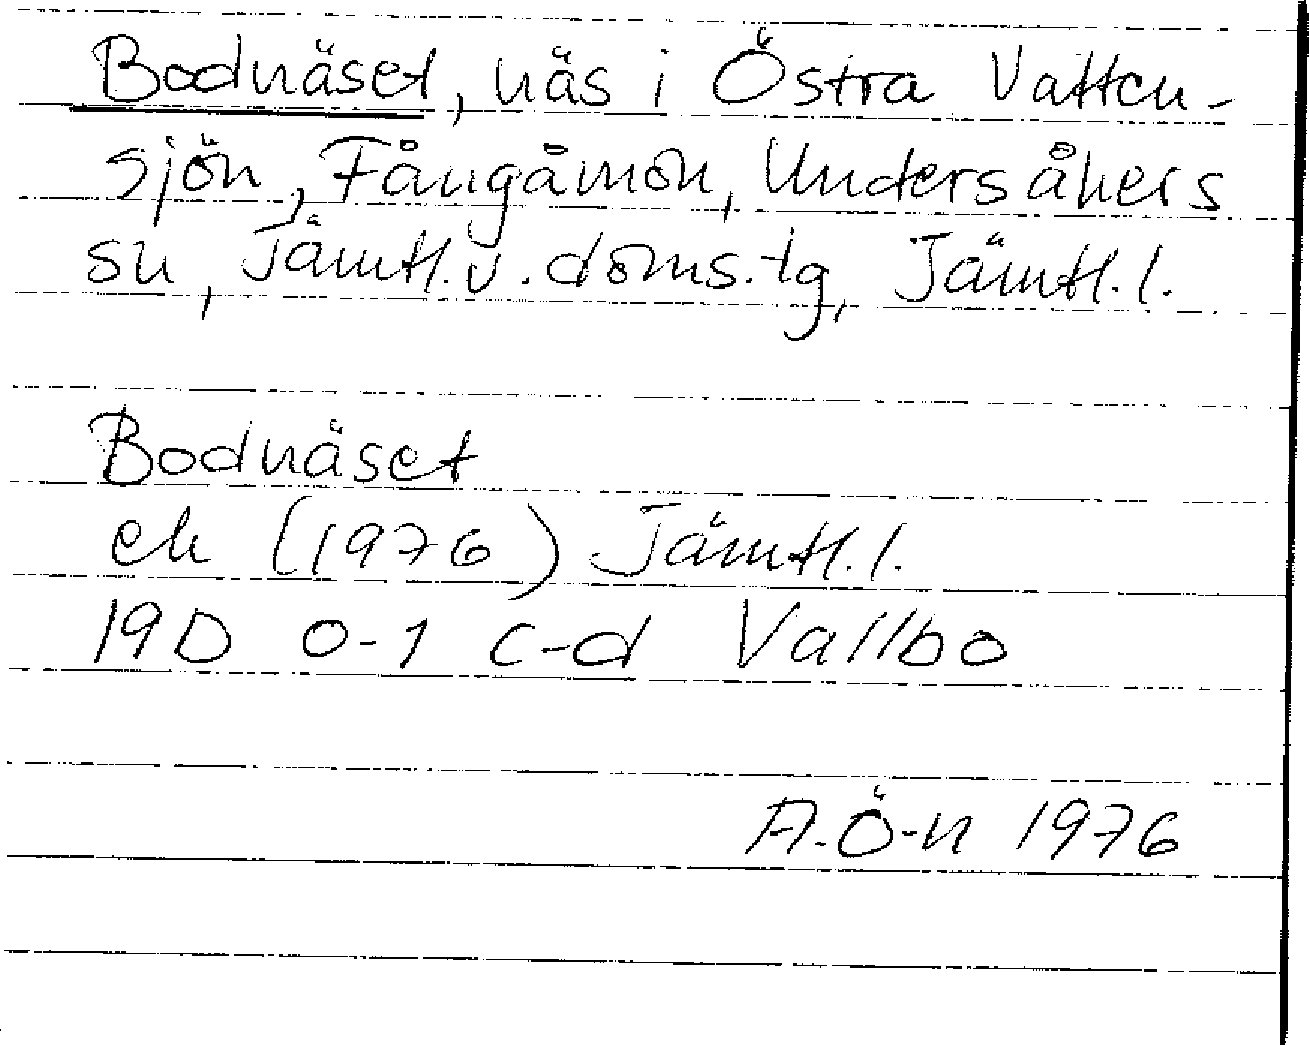 Bodnäset, näs i Östra Vatten-
sjön, Fångåmon, Undersåkers
sn, Jämtl.v.doms.tg, Jämtl.l.
Bodnäset
ek (1976) Jämtl.l.
19D 0-1 c-d Vallbo
A.Ö-n 1976